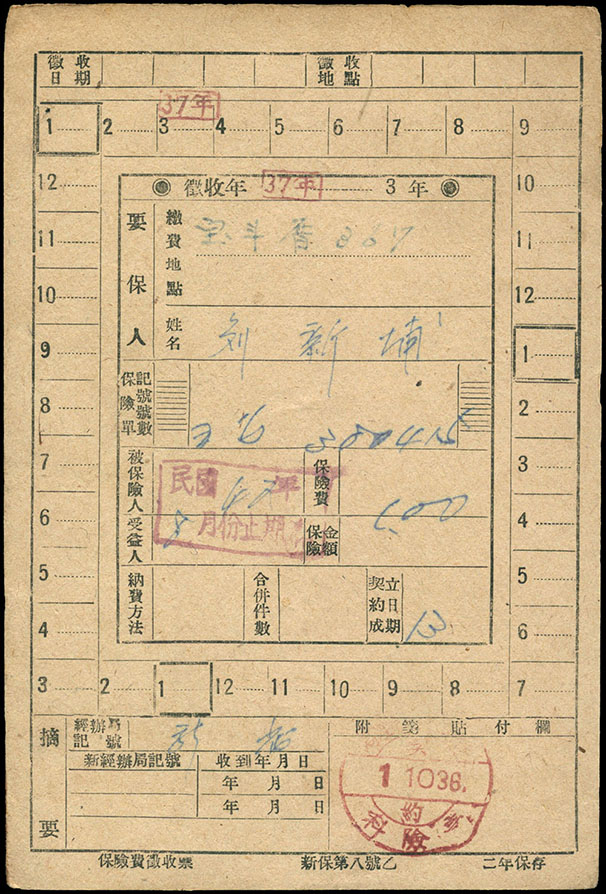 徵收日期 徵收地點
37年
1 2 3 4 5 6 7 8 9
12 10
11 11
10 12
9 1
8 2
7 3
6 4
5 5
4 6
3 2 1 12 11 10 9 8 7
徵收年 37年 3年
要保人
繳費地點
姓名 刘新埔
保險單記號號數
被保險人
保險費
民國 47年
8月份止期
受益人
保險金額
納費方法
合併件數
契約成立日期 13
摘要
經辦局記號
附箋貼付欄
新經辦局記號 收到年月日
年月日
年月日
1 10 36.
保險費徵收票 新保第八號乙 二年保存